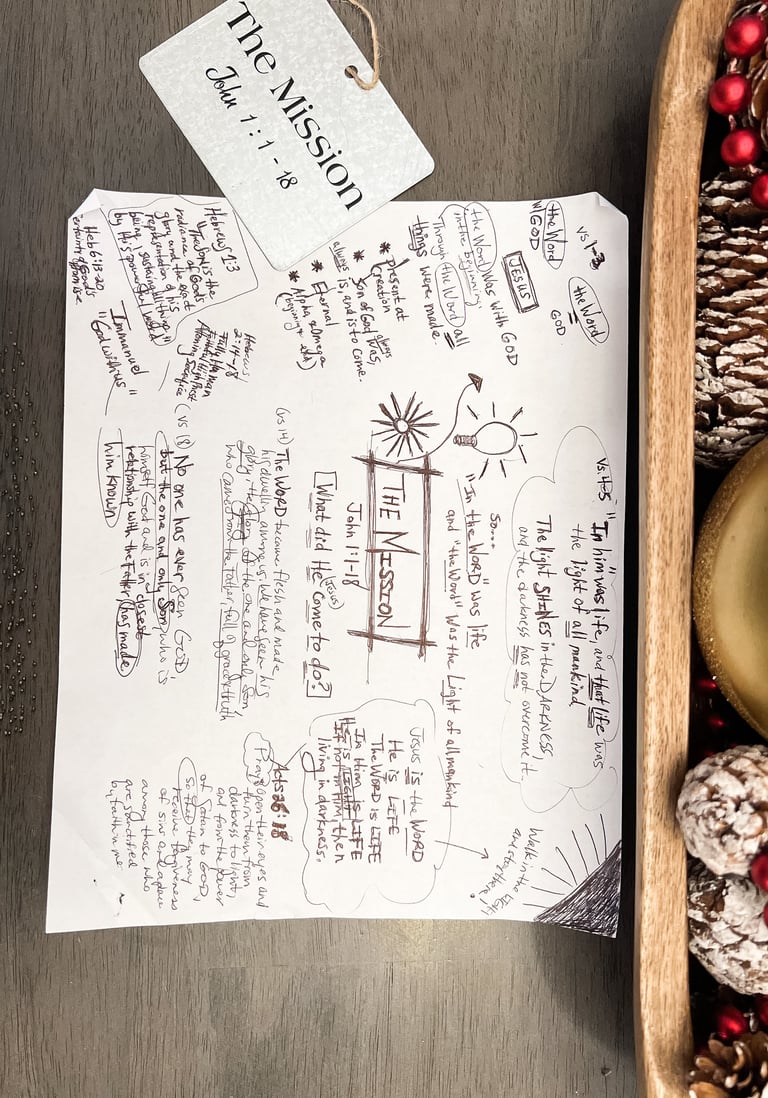 The Mission
John 1:1-18
vs 1-3
the Word
GOD
the Word
W/GOD
JESUS
the Word was with GOD
in the beginning.
Through the Word all
things were made.
* present at
Creation
* Son of God always
was,
always is, and is to come.
* Eternal
* Alpha & Omega
(beginning & end)
Hebrews 1:3
"The SON is the
radiance of God's
glory and the exact
representation of his
being, sustaining all things
by His powerful word"
Heb 6:13-20
certainty of God's
promise
Hebrews
2:14-18
Fully Human
Faithful High Priest
Atoning Sacrifice
Immanuel
"God with us"
vs. 4-5 "In him was life, and that life was
the light of all mankind
The light SHINES in the DARKNESS,
and the darkness has not overcome it.
So...
"In the WORD" was life
and "the Word" was the Light of all mankind
THE MISSION
John 1:1-18
(Jesus)
What did He come to do?
(vs 14) The WORD became flesh and made his
his dwelling among us. We have seen his
glory, the glory of the one and only Son
who came from the Father, full of grace & truth
(vs 18) No one has ever seen GOD,
but the one and only Son, who is
himself God and is in closest
relationship with the Father, has made
him known
Walk in the
Light
and stay there
Jesus is the WORD
He is LIFE
The WORD is LIFE
In Him is LIFE
He is LIGHT
If not in Him, then
living in darkness.
Acts 26:18
(Pray) open their eyes and
turn them from
darkness to light,
and from the power
of Satan to GOD,
so that they may
receive forgiveness
of sins and a place
among those who
are sanctified
by faith in me